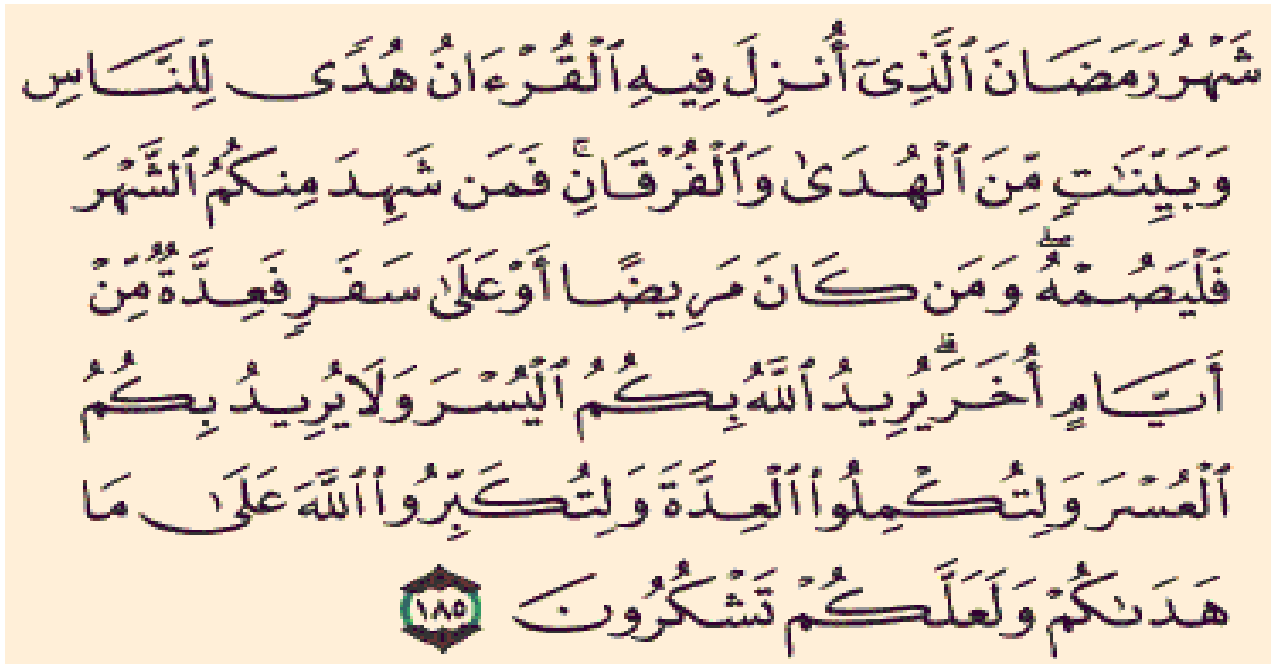 شَهْرُ رَمَضَانَ ٱلَّذِىٓ أُنزِلَ فِيهِ ٱلْقُرْءَانُ هُدًى لِّلنَّاسِ
وَبَيِّنَٰتٍ مِّنَ ٱلْهُدَىٰ وَٱلْفُرْقَانِۚ فَمَن شَهِدَ مِنكُمُ ٱلشَّهْرَ
فَلْيَصُمْهُۖ وَمَن كَانَ مَرِيضًا أَوْ عَلَىٰ سَفَرٍ فَعِدَّةٌ مِّنْ
أَيَّامٍ أُخَرَۗ يُرِيدُ ٱللَّهُ بِكُمُ ٱلْيُسْرَ وَلَا يُرِيدُ بِكُمُ
ٱلْعُسْرَ وَلِتُكْمِلُوا۟ ٱلْعِدَّةَ وَلِتُكَبِّرُوا۟ ٱللَّهَ عَلَىٰ مَا
هَدَىٰكُمْ وَلَعَلَّكُمْ تَشْكُرُونَ ١٨٥